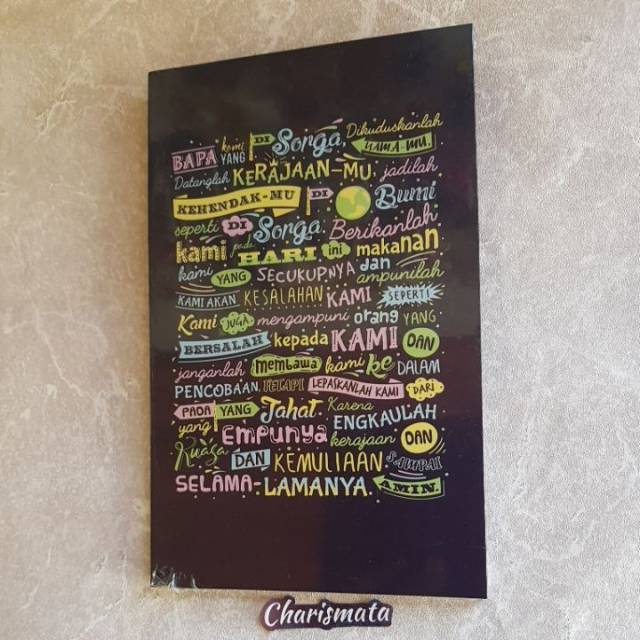 BAPA kami YANG DI Sorga, Dikuduskanlah NAMA-MU.
Datanglah KERAJAAN-MU. jadilah
KEHENDAK-MU DI Bumi
seperti DI Sorga. Berikanlah
kami pada HARI ini makanan
kami YANG SECUKUPNYA dan ampunilah
KAMI AKAN KESALAHAN KAMI SEPERTI
Kami JUGA mengampuni orang YANG
BERSALAH kepada KAMI DAN
janganlah membawa kami ke DALAM
PENCOBAAN, TETAPI LEPASKANLAH KAMI DARI
PADA YANG Jahat. Karena ENGKAULAH
yang Empunya kerajaan DAN
Kuasa DAN KEMULIAAN SAMPAI
SELAMA-LAMANYA. AMIN.
Charismata